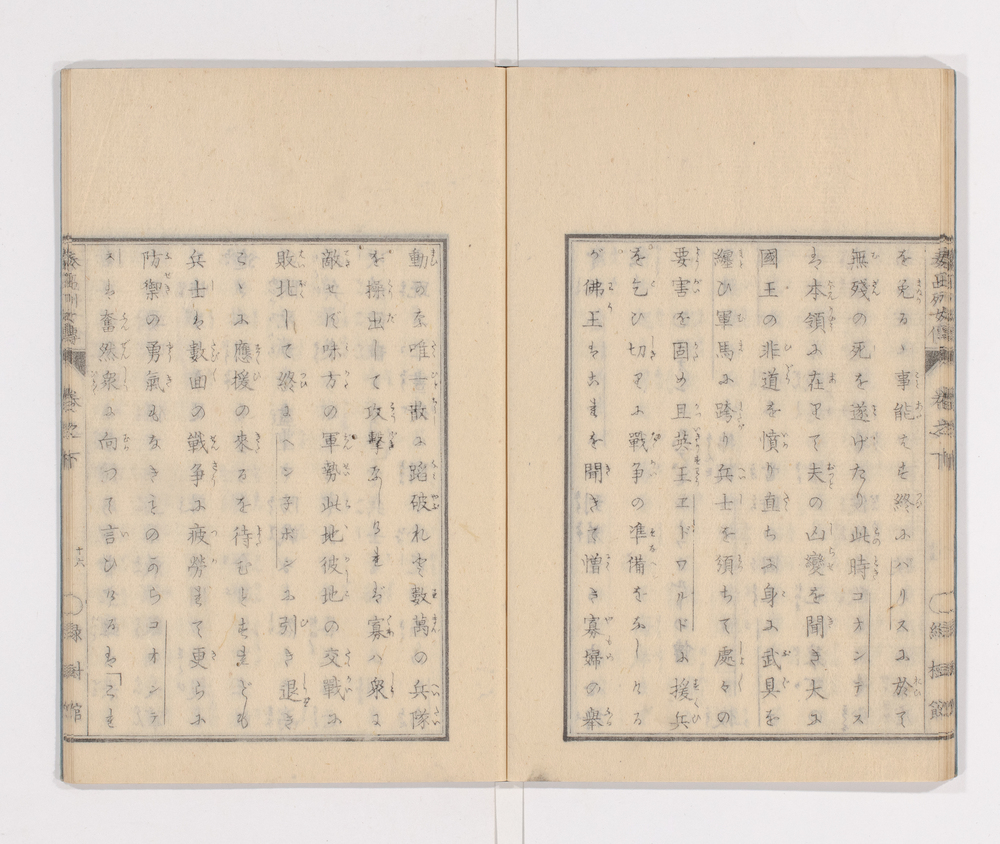 を免るゝ事能はず終にパリスに於て
無殘の死を遂けたり此時コオンテス
は本領に在りて夫の凶變を聞き大に
國王の非道を憤り直ちに身に武具を
纏ひ軍馬に跨り兵士を須ちて處々の
要害を固め且英王エドワルドに援兵
を乞ひ切りに戰争の準備をなしける
が佛王はこれを聞きて憎き寡婦の擧
動かな唯一散に蹈破れと數萬の兵隊
を操出して攻擊なしければ寡ハ衆に
敵せず味方の軍勢此地彼地の交戰に
敗北して終にヘンネボンに引き退き
こゝに應援の來るを待むとすれども
兵士は數回の戰争に疲勞れて更らに
防禦の勇氣もなきものゝからコオンテ
スは奮然衆に向つて言ひけるは「こも
卷之下
十六